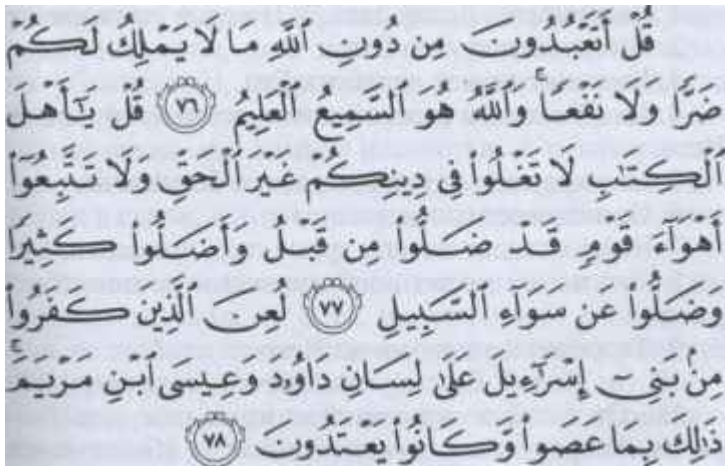 قُلْ أَتَعْبُدُونَ مِن دُونِ ٱللَّهِ مَا لَا يَمْلِكُ لَكُمْ
ضَرًّا وَلَا نَفْعًا ۚ وَٱللَّهُ هُوَ ٱلسَّمِيعُ ٱلْعَلِيمُ ٧٦ قُلْ يَـٰٓأَهْلَ
ٱلْكِتَـٰبِ لَا تَغْلُوا۟ فِى دِينِكُمْ غَيْرَ ٱلْحَقِّ وَلَا تَتَّبِعُوٓا۟
أَهْوَآءَ قَوْمٍ قَدْ ضَلُّوا۟ مِن قَبْلُ وَأَضَلُّوا۟ كَثِيرًا
وَضَلُّوا۟ عَن سَوَآءِ ٱلسَّبِيلِ ٧٧ لُعِنَ ٱلَّذِينَ كَفَرُوا۟
مِنۢ بَنِىٓ إِسْرَٰٓءِيلَ عَلَىٰ لِسَانِ دَاوُۥدَ وَعِيسَى ٱبْنِ مَرْيَمَ ۚ
ذَٰلِكَ بِمَا عَصَوا۟ وَّكَانُوا۟ يَعْتَدُونَ ٧٨